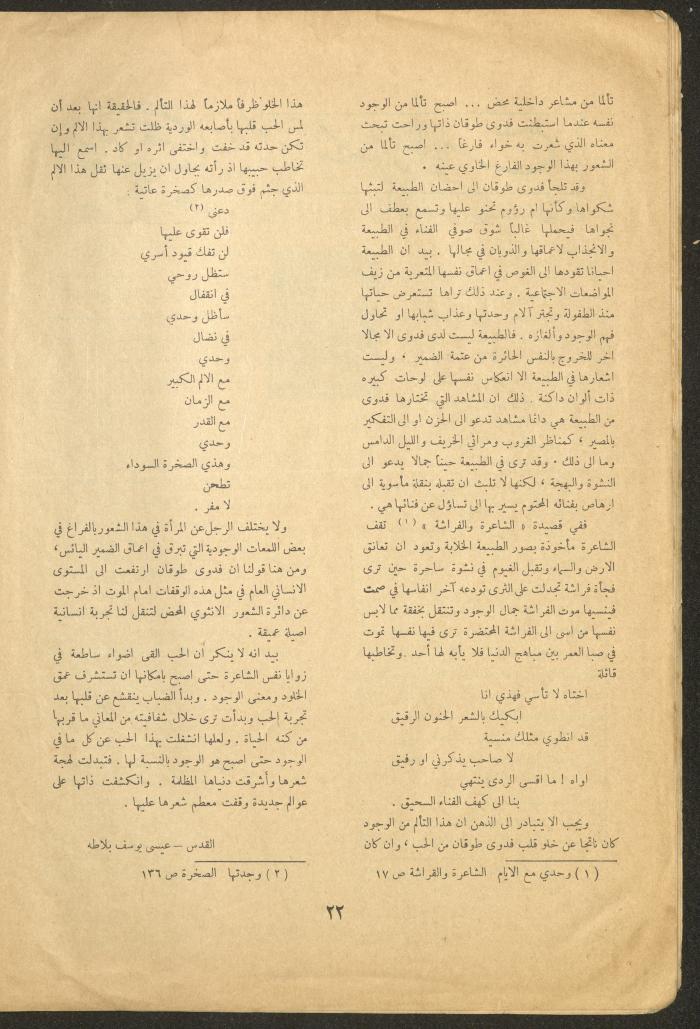 تألما من مشاعر داخلية محض ... اصبح تألما من الوجود
نفسه عندما استبطنت فدوى طوقان ذاتها وراحت تبحث
معناه الذي شعرت به خواء فارغاً ... اصبح تألما من
الشعور بهذا الوجود الفارغ الخاوي عينه .
وقد تلجأ فدوى طوقان الى احضان الطبيعة لتبثها
شكواها وكأنها ام رؤوم تحنو عليها وتسمع بعطف الى
نجواها فيحملها غالباً شوق صوفي الفناء في الطبيعة
والانجذاب لاعماقها والذوبان في مجالها . بيد ان الطبيعة
احيانا تقودها الى الغوص في اعماق نفسها المتعرية من زيف
المواضعات الاجتماعية . وعند ذلك تراها تستعرض حياتها
منذ الطفولة وتجتر آلام وحدتها وعذاب شبابها او تحاول
فهم الوجود وألغازه . فالطبيعة ليست لدى فدوى الا مجالا
اخر للخروج بالنفس الحائرة من عتمة الضمير ، وليست
اشعارها في الطبيعة الا انعكاس نفسها على لوحات كبيره
ذات ألوان داكنة . ذلك ان المشاهد التي تختارها فدوى
من الطبيعة هي دائما مشاهد تدعو الى الحزن او الى التفكير
بالمصير ، كمناظر الغروب ومراثي الخريف والليل الدامس
وما الى ذلك . وقد ترى في الطبيعة حيناً جمالا يدعو الى
النشوة والبهجة ، لكنها لا تلبث ان تقبله بنقلة مأسوية الى
ارهاص بفنائه المحتوم يسير بها الى تساؤل عن فنائها هي .
ففي قصيدة « الشاعرة والفراشة » (١) تقف
الشاعرة مأخوذة بصور الطبيعة الخلابة وتعود ان تعانق
الارض والسماء وتقبل الغيوم في نشوة ساحرة حين ترى
فجأة فراشة تجدلت على الثرى تودعه آخر انفاسها في صمت
فينسيها موت الفراشة جمال الوجود وتنتقل بخفقة مما لابس
نفسها من اسى الى الفراشة المحتضرة ترى فيها نفسها تموت
في صبا العمر بين مباهج الدنيا فلا يأبه لها أحد . وتخاطبها
قائلة
اختاه لا تأسي فهذي انا
ابكيك بالشعر الحنون الرقيق
قد انطوي مثلك منسية
لا صاحب يذكرني او رفيق
اواه ! ما اقسى الردى ينتهي
بنا الى كهف الفناء السحيق .
ويجب الا يتبادر الى الذهن ان هذا التألم من الوجود
كان ناتجا عن خلو قلب فدوى طوقان من الحب ، وان كان
(١) وحدي مع الايام الشاعرة والفراشة ص ١٧
هذا الخلو ظرفاً ملازماً لهذا التألم . فالحقيقة انها بعد أن
لمس الحب قلبها بأصابعه الوردية ظلت تشعر بهذا الالم وإن
تكن حدته قد خفت واختفى اثره او كاد . اسمع اليها
تخاطب حبيبها اذ رأته يحاول ان يزيل عنها ثقل هذا الالم
الذي جثم فوق صدرها كصخرة عاتية :
دعني (٢)
فلن تقوى عليها
لن تفك قيود أسري
ستظل روحي
في انقفال
سأظل وحدي
في نضال
وحدي
مع الالم الكبير
مع الزمان
مع القدر
وحدي
وهذي الصخرة السوداء
تطحن
لا مفر .
ولا يختلف الرجل عن المرأة في هذا الشعور بالفراغ في
بعض اللمعات الوجودية التي تبرق في اعماق الضمير اليائس،
ومن هنا قولنا ان فدوى طوقان ارتفعت الى المستوى
الانساني العام في مثل هذه الوقفات امام الموت اذ خرجت
عن دائرة الشعور الانثوي المحض لتنقل لنا تجربة انسانية
اصيلة عميقة .
بيد انه لا ينكر أن الحب القى اضواء ساطعة في
زوايا نفس الشاعرة حتى اصبح بامكانها ان تستشرف عمق
الخلود ومعنى الوجود . وبدأ الضباب ينقشع عن قلبها بعد
تجربة الحب وبدأت ترى خلال شفافيته من المعاني ما قربها
من كنه الحياة . ولعلها انشغلت بهذا الحب عن كل ما في
الوجود حتى اصبح هو الوجود بالنسبة لها . فتبدلت لهجة
شعرها وأشرقت دنياها المظلمة . وانكشفت ذاتها على
عوالم جديدة وقفت معظم شعرها عليها .
القدس – عيسى يوسف بلاطه
(٢) وجدتها الصخرة ص ١٣٦
٢٢